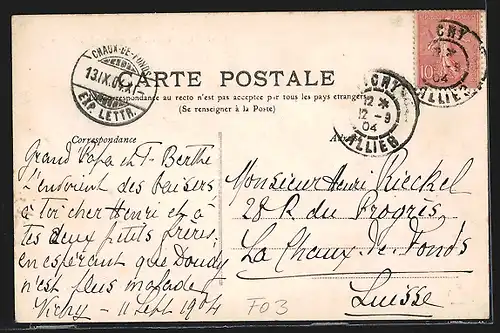 CHAUX-DE-FONDS
13.IX.04.XI
EXP. LETTR.
CARTE POSTALE
La correspondance au recto n'est pas acceptée par tous les pays étrangers
(Se renseigner à la Poste)
Correspondance
VICHY
12 *
12 - 9
04
ALLIER
CHY
10
04
ALLIER
Grand Papa et T- Berthe
t'envoient des baisers
à toi cher Henri et à
tes deux petits frères,
en espérant que Doudy
n'est plus malade
Vichy - 11 Sept. 1904
Monsieur Henri Rieckel
28 R. du Progrès
La Chaux-de-Fonds
Suisse
F03